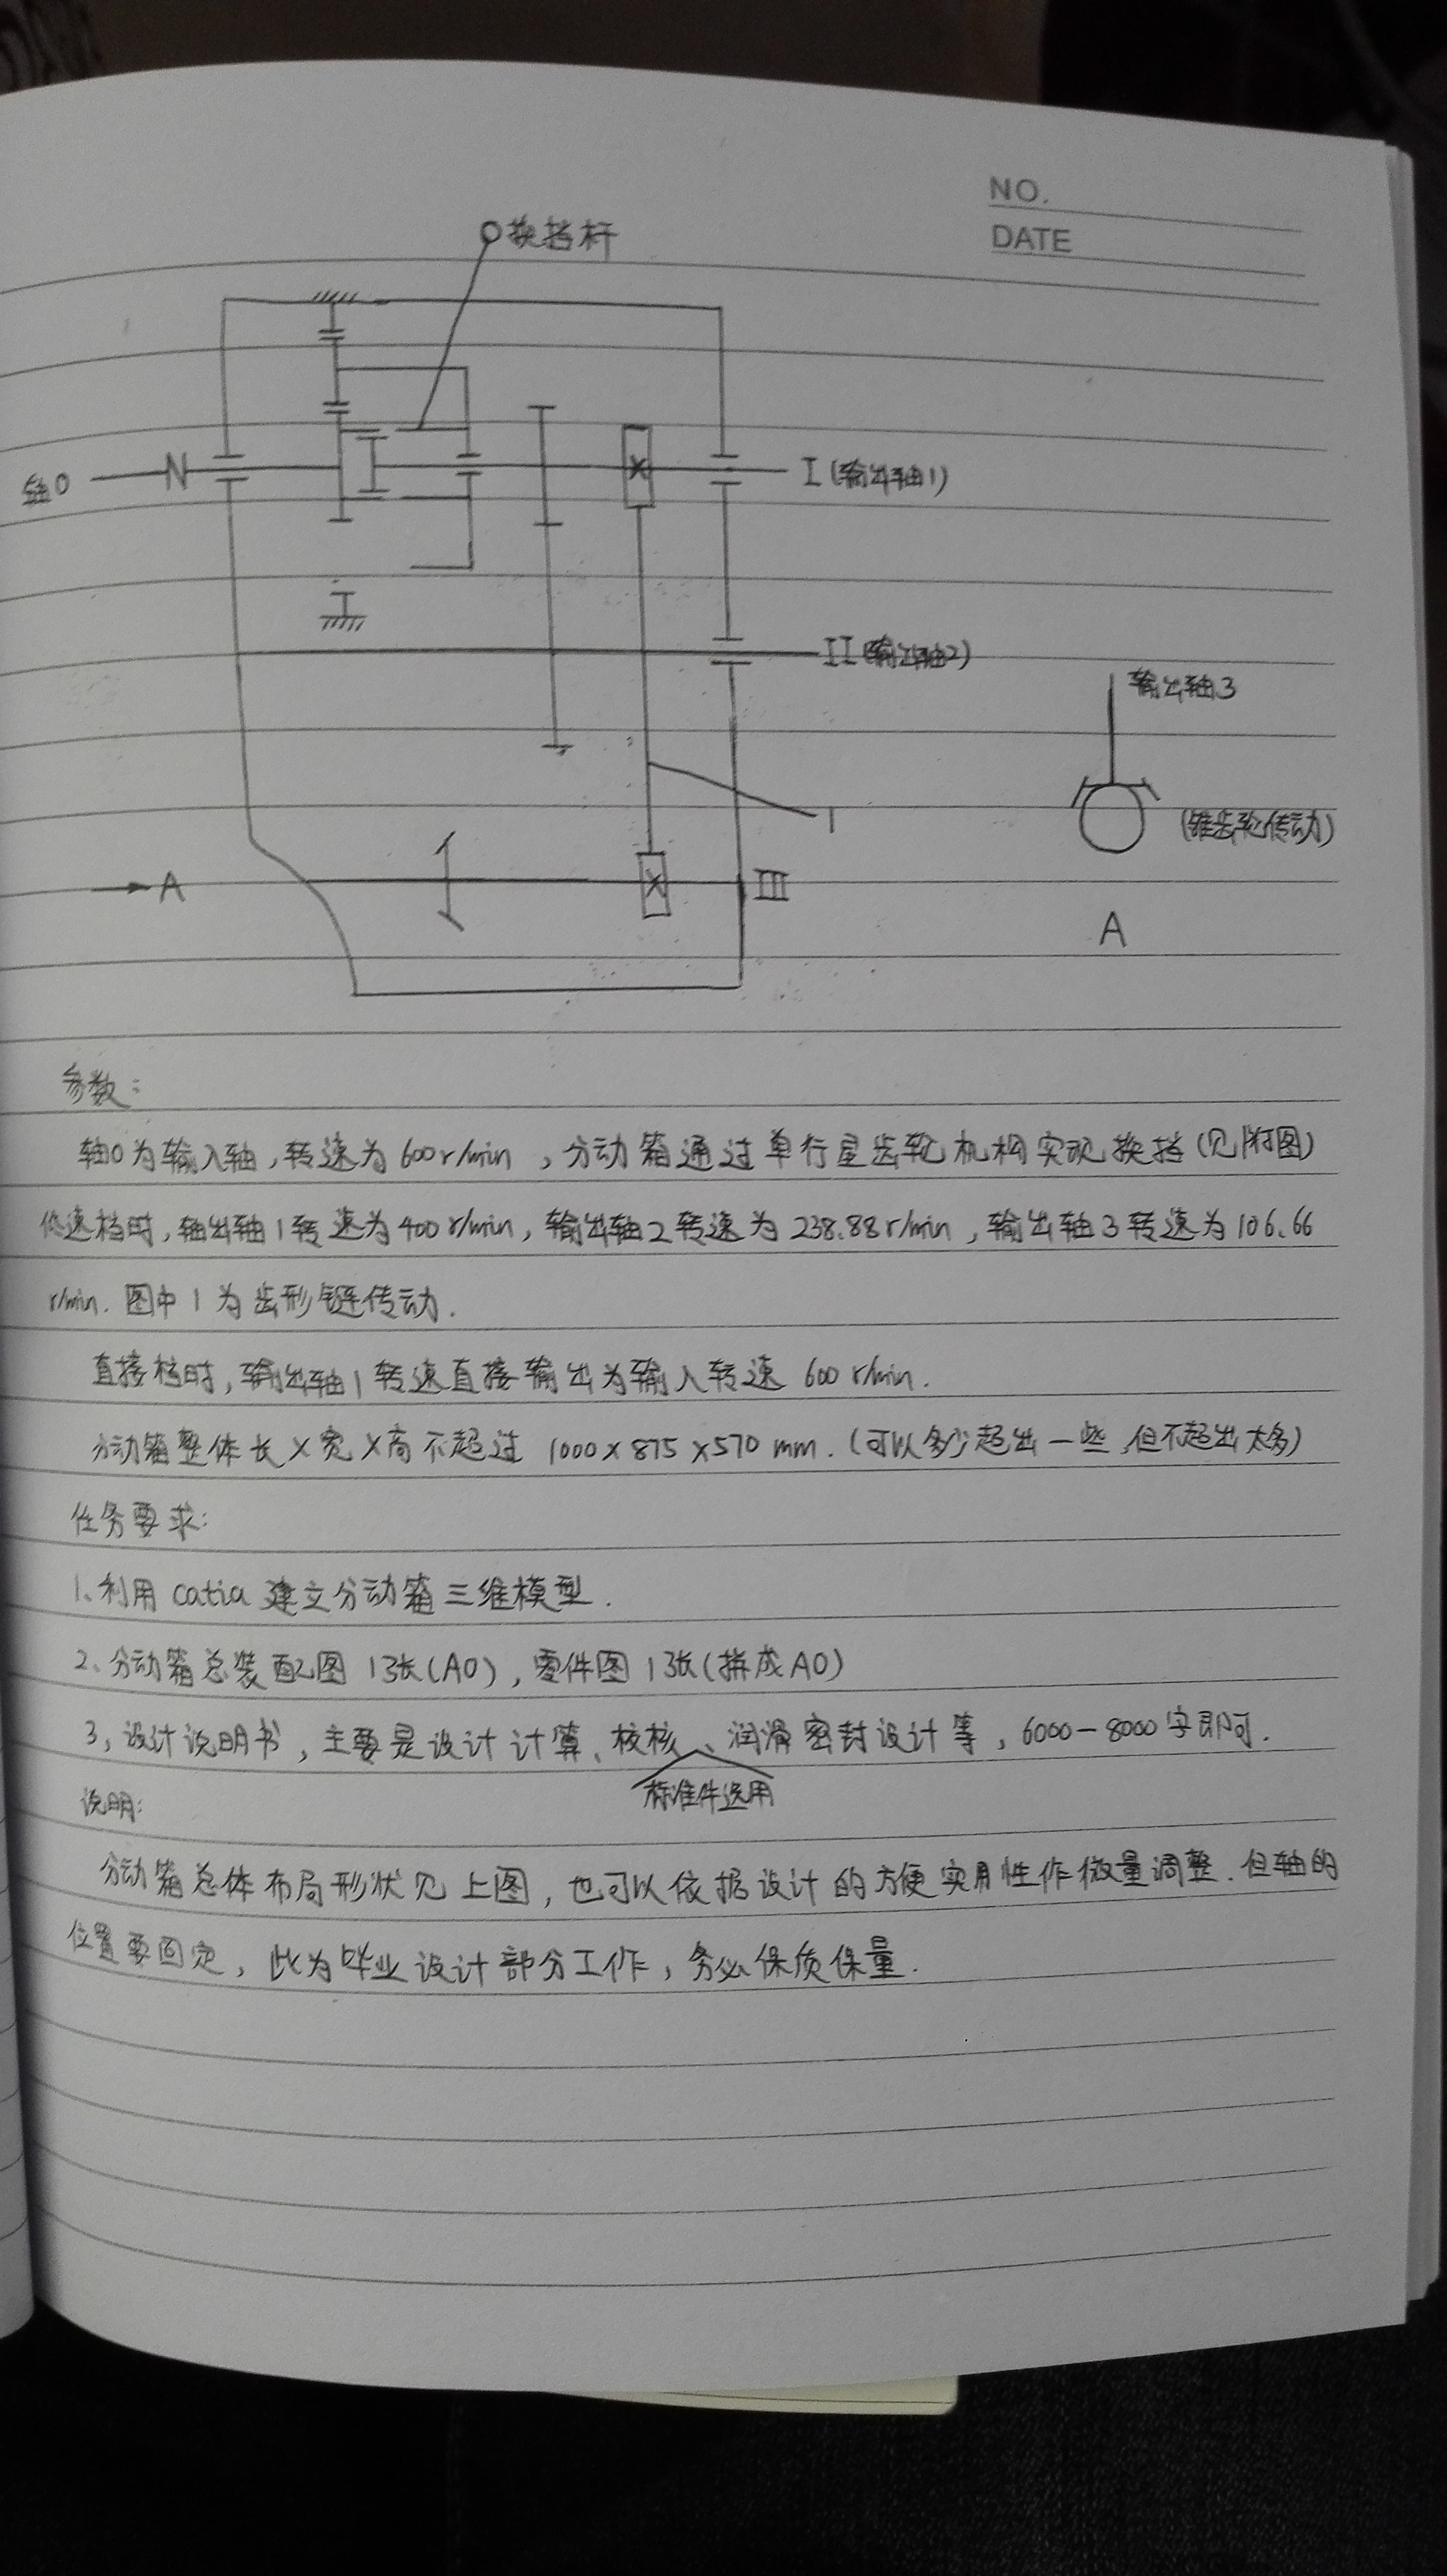 NO.
DATE
换挡杆
轴0
N
I (输出轴1)
II (输出轴2)
输出轴3
1
(锥齿轮传动)
A
III
A
参数:
轴0为输入轴,转速为600r/min,分动箱通过单行星齿轮机构实现换挡(见附图)
低速档时,轴出轴1转速为400r/min,输出轴2转速为238.88r/min,输出轴3转速为106.66
r/min.图中1为齿形链传动.
直接档时,输出轴1转速直接输出为输入转速 600 r/min.
分动箱整体长×宽×高不超过 1000×875×570 mm.(可以多少超出一些,但不超出太多)
任务要求:
1、利用catia建立分动箱三维模型.
2、分动箱总装配图1张(A0),零件图1张(拼成A0)
3,设计说明书,主要是设计计算、校核、润滑密封设计等,6000-8000字即可.
标准件选用
说明:
分动箱总体布局形状见上图,也可以依据设计的方便实用性作微量调整.但轴的
位置要固定,此为毕业设计部分工作,务必保质保量.